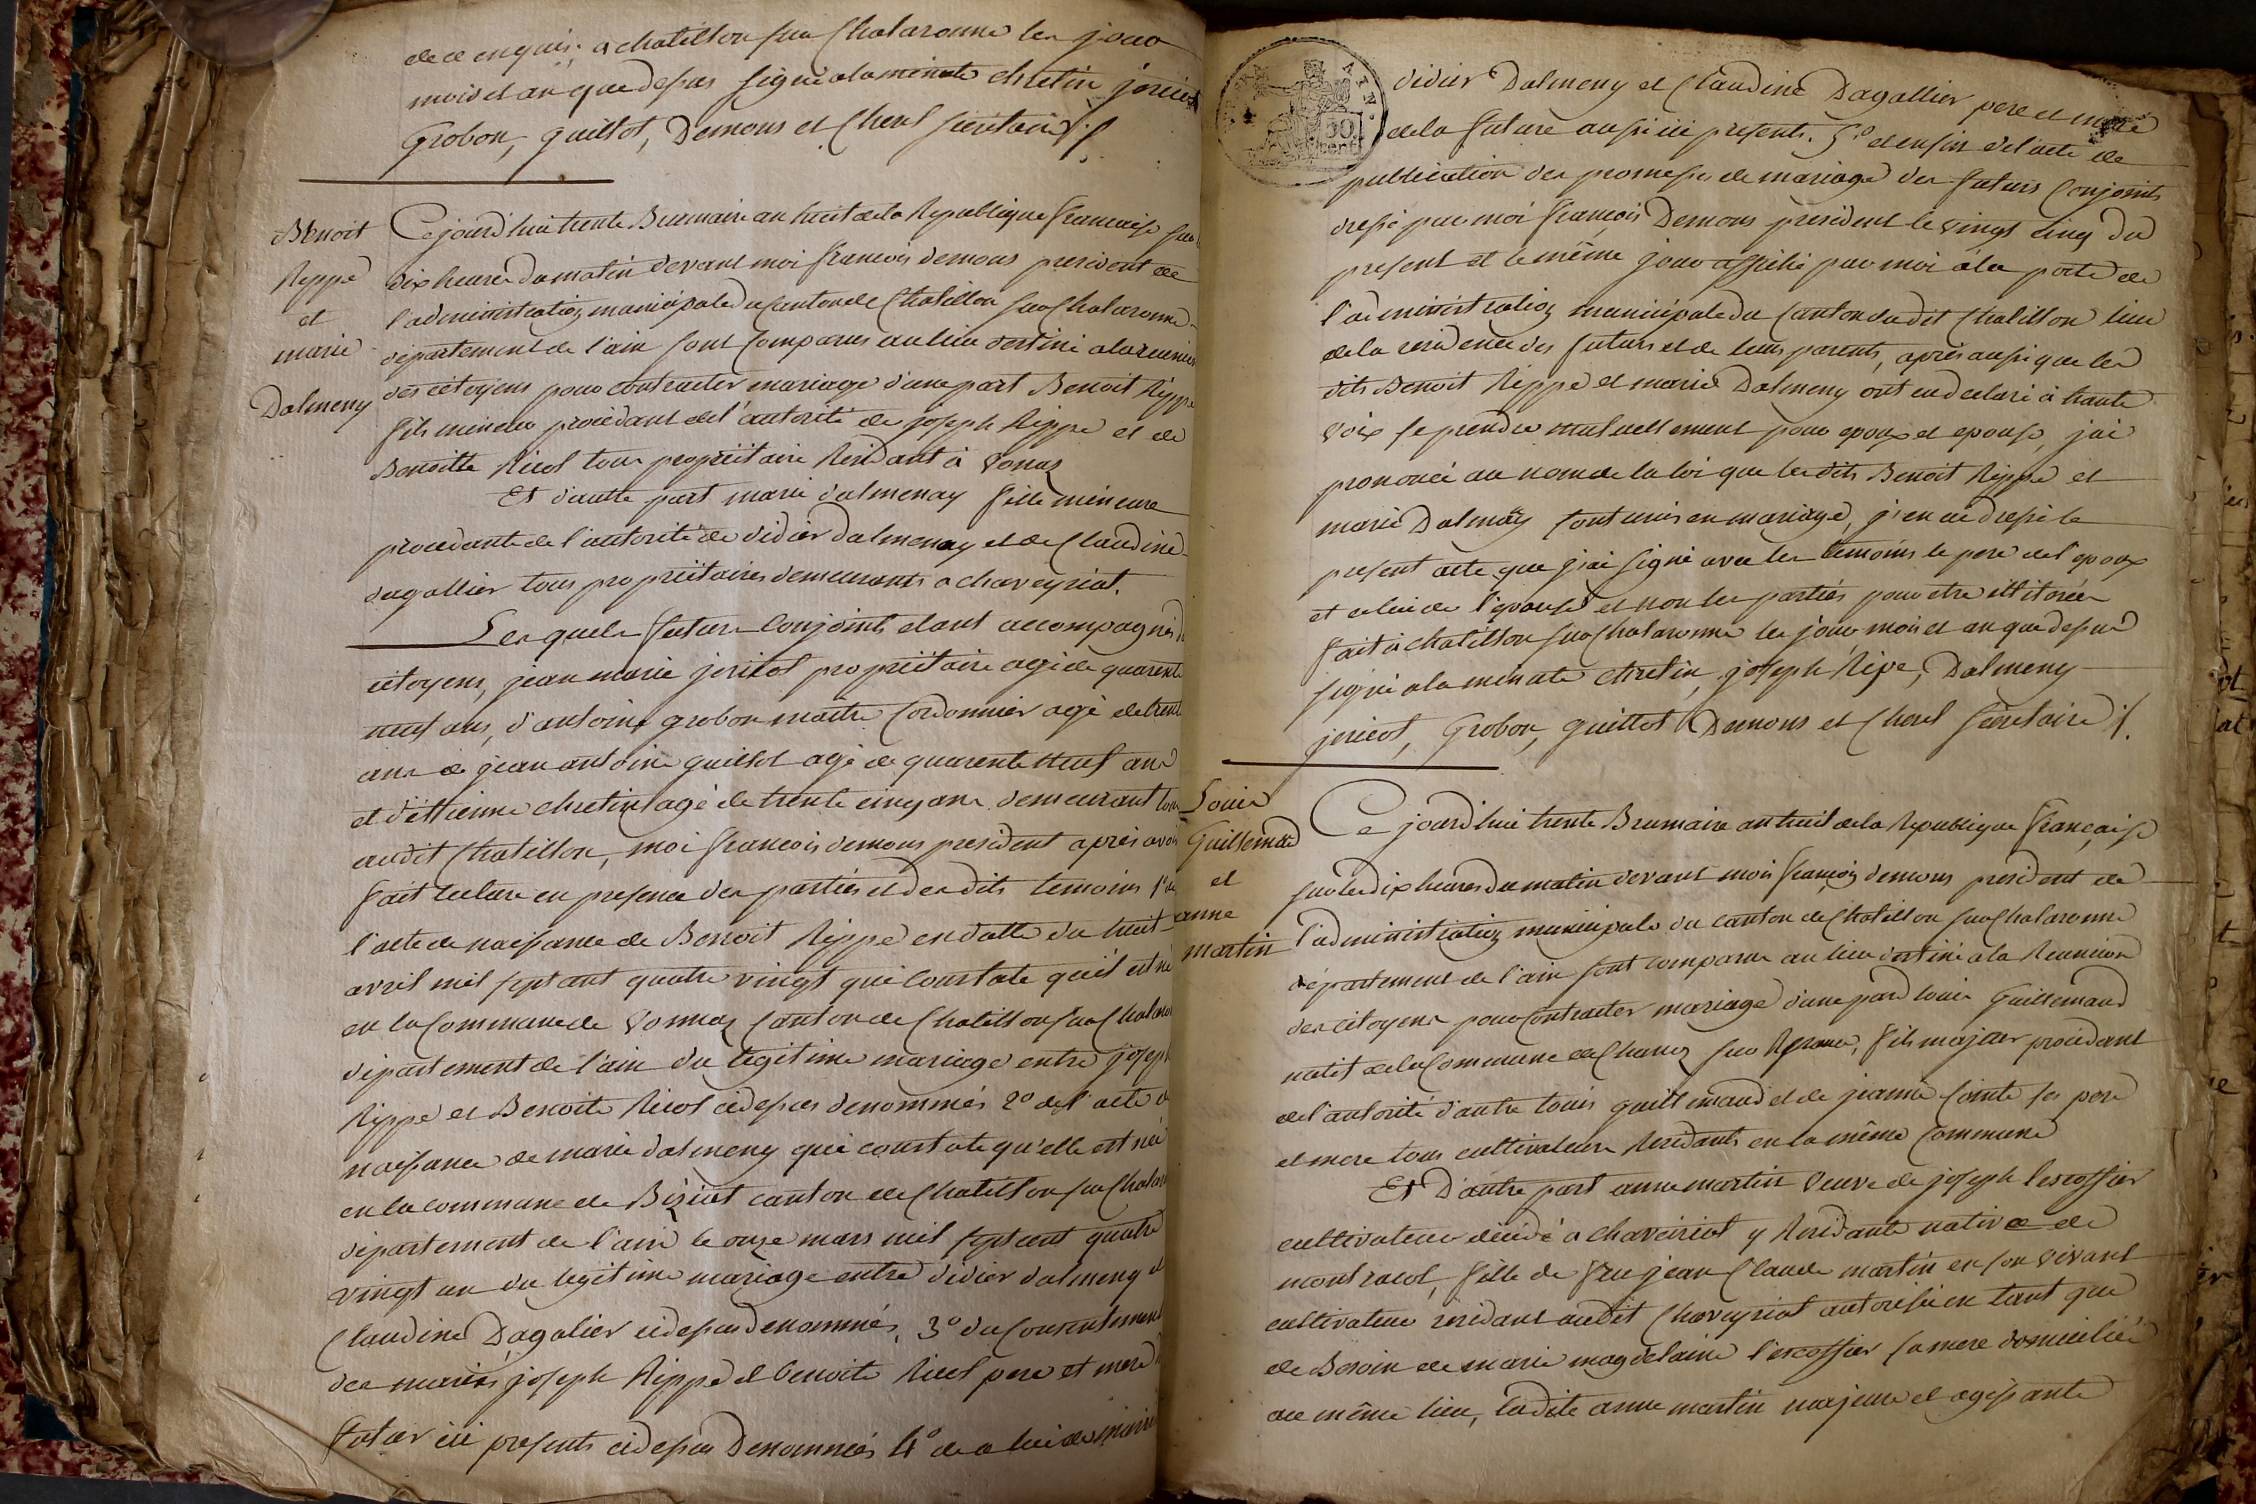 de ce enquis; a chatillon sur Chalaronne les jour
mois et an que dessus signé a la minute chretin joricot
Grobon, guillot, Demons et Cherel secrétaire ./.
Benoit
Rippe
et
marie
Dalmeny
Ce jourd'hui trente Brumaire an huit de la Republique francaise sur
dix heures du matin devant moi francois demons president de
l'administration municipale du canton de Chatillon sur Chalaronne
département de l'ain sont comparus au lieu destiné a la reunion
des citoyens pour contracter mariage d'une part Benoit Rippe
fils mineur procédant de l'autorité de joseph Rippe et de
Benoitte Ricol tous propriétaire Residant à Vonnaz
Et d'autre part marie dalmenay fille mineure
procedante de l'autorité de didier dalmenay et de Claudine
dagallier tous propriétaires demeurants a chaveyriat.
Lesquels futurs Conjoints etant accompagnés de
citoyens, jean marie joricot propriétaire agé de quarente
neuf ans, d'antoine grobon maitre Cordonnier agé de trente
ans de jean antoine guillot agé de quarente neuf ans
et d'ettienne chretin agé de trente cinq ans demeurant tous
audit Chatillon, moi francois demons president après avoir
fait lecture en presence des parties et des dits temoins 1º de
l'acte de naissance de Benoit Rippe en datte du huit
avril mil sept ant quatre vingt qui constate qu'il est né
en la Commune de Vonnaz Canton de Chatillon sur Chalaronne
département de l'ain du legitime mariage entre joseph
Rippe et Benoite Ricol cidessus denommés 2º de l'acte de
naissance de marie dalmeny qui constate qu'elle est née
en la commune de Biziat canton de Chatillon sur Chalaronne
département de l'ain le onze mars mil sept cent quatre
vingt un du legitime mariage entre didier dalmeny et
Claudine Dagalier cidessus denommés, 3º du Consentement
des mariés joseph Rippe et benoite Ricol pere et mere du
futur ici presents cidessus Denommés 4º de celui de
didier Dalmeny et Claudine Dagallier pere et mere
de la future aussi ici presents. 5º et enfin de l'acte de
publication des promesses de mariage des futurs Conjoints
dressé par moi françois Demons president le vingt cinq du
present et le même jour affiché par moi à la porte de
l'administration municipale du Canton dudit Chatillon lieu
de la residence des futurs et de leurs parents, après aussi que les
dits Benoit Rippe et marie Dalmeny ont eu declaré à haute
voix se prendre mutuellement pour epoux et epouse, jai
prononcé au nom de la loi que les dits Benoit Rippe et
marie Dalmeny sont unis en mariage, j'en ai dressé le
present acte que j'ai signé avec les temoins le pere de l'epoux
et celui de l'epouse et non les parties pour etre illitorées
fait à chatillon sur chalaronne les jour mois et an que dessus
signé a la minute chretin, joseph Ripe, Dalmeny
joricot, Grobon, guillot Demons et Cherel secretaire ./.
Louis
Guillemaud
et
anne
martin
Ce jourd'hui trente Brumaire an huit de la Republique Française
sur les dix heures du matin devant moi françois demons president de
l'administration municipale du canton de Chatillon sur Chalaronne
département de l'ain sont comparus au lieu destiné a la Reunion
des citoyens pour contracter mariage d'une part louis Guillemaud
natif de la Commune de Chanoz, fils majeur procédant
de l'autorité d'autre louis guillemaud et de jeanne Cointe ses pere
et mere tous cultivateurs Residants en la même Commune
Et D'autre part anne martin Veuve de joseph lescoffier
cultivateur décédé a chaveiriat y Residante native de
montracol, fille de feu jean Claude martin en son vivant
cultivateur residant audit Chaveyriat autorisée en tant que
de Besoin de marie magdelaine l'escoffier sa mere domiciliée
au même lieu, ladite anne martin majeure et agissante